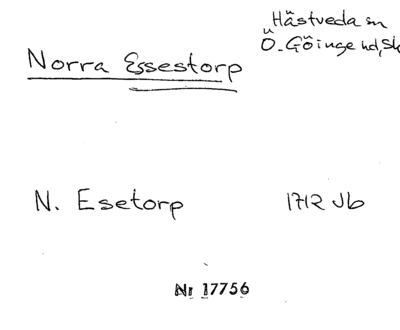 Hästveda sn
Ö. Göinge hd, Sk
Norra Essestorp
N. Esetorp 1712 Jb
Nr 17756